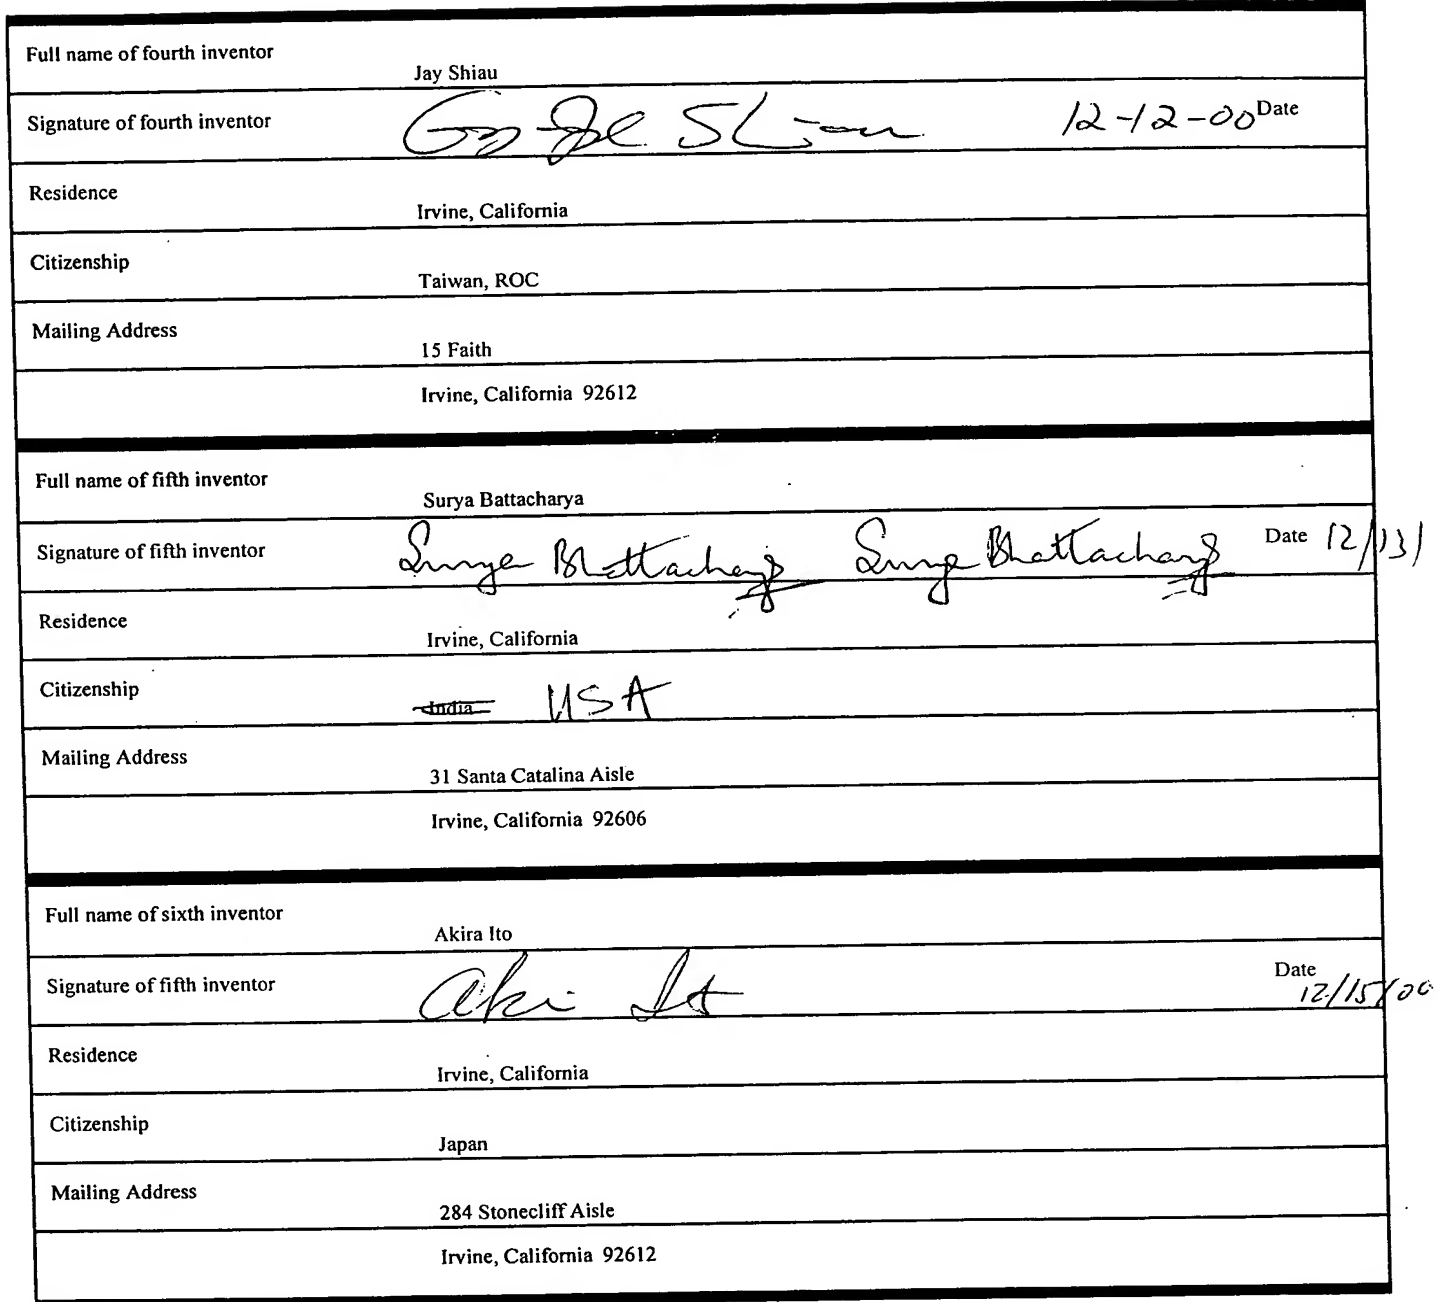 Full name of fourth inventor
Jay Shiau
Signature of fourth inventor Shiau 12-12-00 Date
Residence
Irvine, California
Citizenship
Taiwan, ROC
Mailing Address
15 Faith
Irvine, California 92612
Full name of fifth inventor
Surya Battacharya
Signature of fifth inventor Surya Bhattacharya Surya Bhattacharya Date 12/13/
Residence
Irvine, California
Citizenship
India USA
Mailing Address
31 Santa Catalina Aisle
Irvine, California 92606
Full name of sixth inventor
Akira Ito
Signature of fifth inventor Aki Ito Date
12/15/00
Residence
Irvine, California
Citizenship
Japan
Mailing Address
284 Stonecliff Aisle
Irvine, California 92612